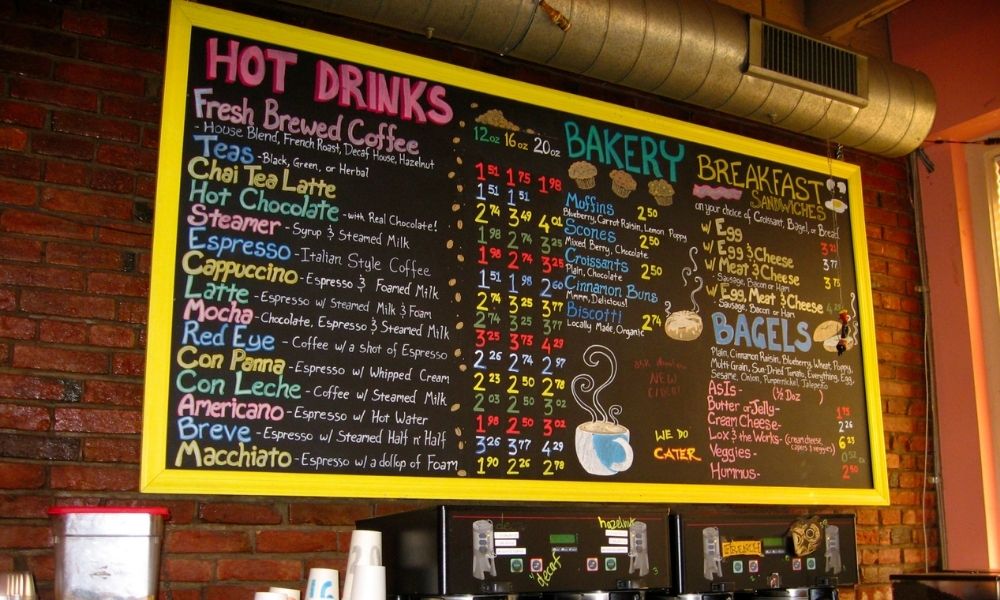 HOT DRINKS
12oz 16oz 20oz
Fresh Brewed Coffee 1.51 1.75 1.98
- House Blend, French Roast, Decaf House, Hazelnut
Teas - Black, Green, or Herbal 1.51 1.51
Chai Tea Latte 2.74 3.49 4.01
Hot Chocolate - with Real Chocolate! 1.98 2.74 3.25
Steamer - Syrup & Steamed Milk 1.98 2.74 3.25
Espresso - Italian Style Coffee 1.51 1.98 2.60
Cappuccino - Espresso & Foamed Milk 2.74 3.25 3.77
Latte - Espresso w/ Steamed Milk & Foam 2.74 3.25 3.77
Mocha - Chocolate, Espresso & Steamed Milk 3.25 3.73 4.29
Red Eye - Coffee w/ a shot of Espresso 2.26 2.74 2.97
Con Panna - Espresso w/ Whipped Cream 2.23 2.50 2.78
Con Leche - Coffee w/ Steamed Milk 2.03 2.50 3.02
Americano - Espresso w/ Hot Water 1.98 2.50 3.02
Breve - Espresso w/ Steamed Half n' Half 3.26 3.77 4.29
Macchiato - Espresso w/ a dollop of Foam 1.90 2.26 2.78
BAKERY
Muffins 2.50
Blueberry, Carrot Raisin, Lemon Poppy
Scones 2.50
Mixed Berry, Chocolate
Croissants 2.50
Plain, Chocolate
Cinnamon Buns
Mmm, Delicious!
Biscotti 2.74
Locally Made, Organic
NEW
WE DO
CATER
BREAKFAST
SANDWICHES
on your choice of Croissant, Bagel, or Bread
w/ Egg
w/ Egg & Cheese 3.77
w/ Meat & Cheese 3.73
- Sausage, Bacon or Ham
w/ Egg, Meat & Cheese
Sausage, Bacon or Ham
BAGELS
Plain, Cinnamon Raisin, Blueberry, Wheat, Poppy,
Multi-Grain, Sun-Dried Tomato, Everything, Egg,
Sesame, Onion, Pumpernickel, Jalapeño
As Is - (½ Doz )
Butter or Jelly - 1.75
Cream Cheese - 2.26
Lox & the Works - (cream cheese, capers & veggies) 6.23
Veggies - 0.52
Hummus - 2.50
hazelnut
decaf
FRENCH
16